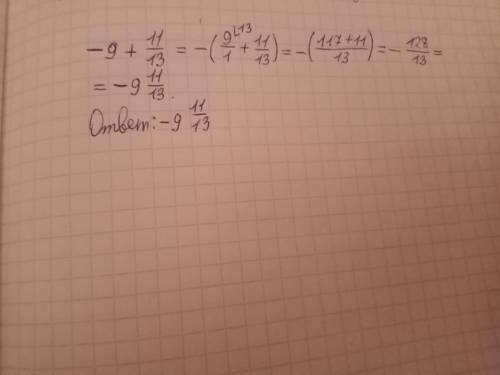 -9 + 11/13 = -(9⌊13/1 + 11/13) = -(117+11/13) = - 128/13 =
= -9 11/13.
Ответ: -9 11/13